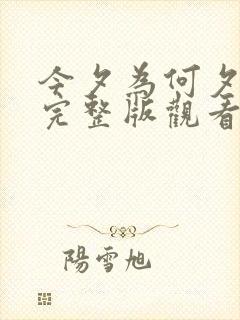 今夕為何夕
完整版觀看
陽雪旭